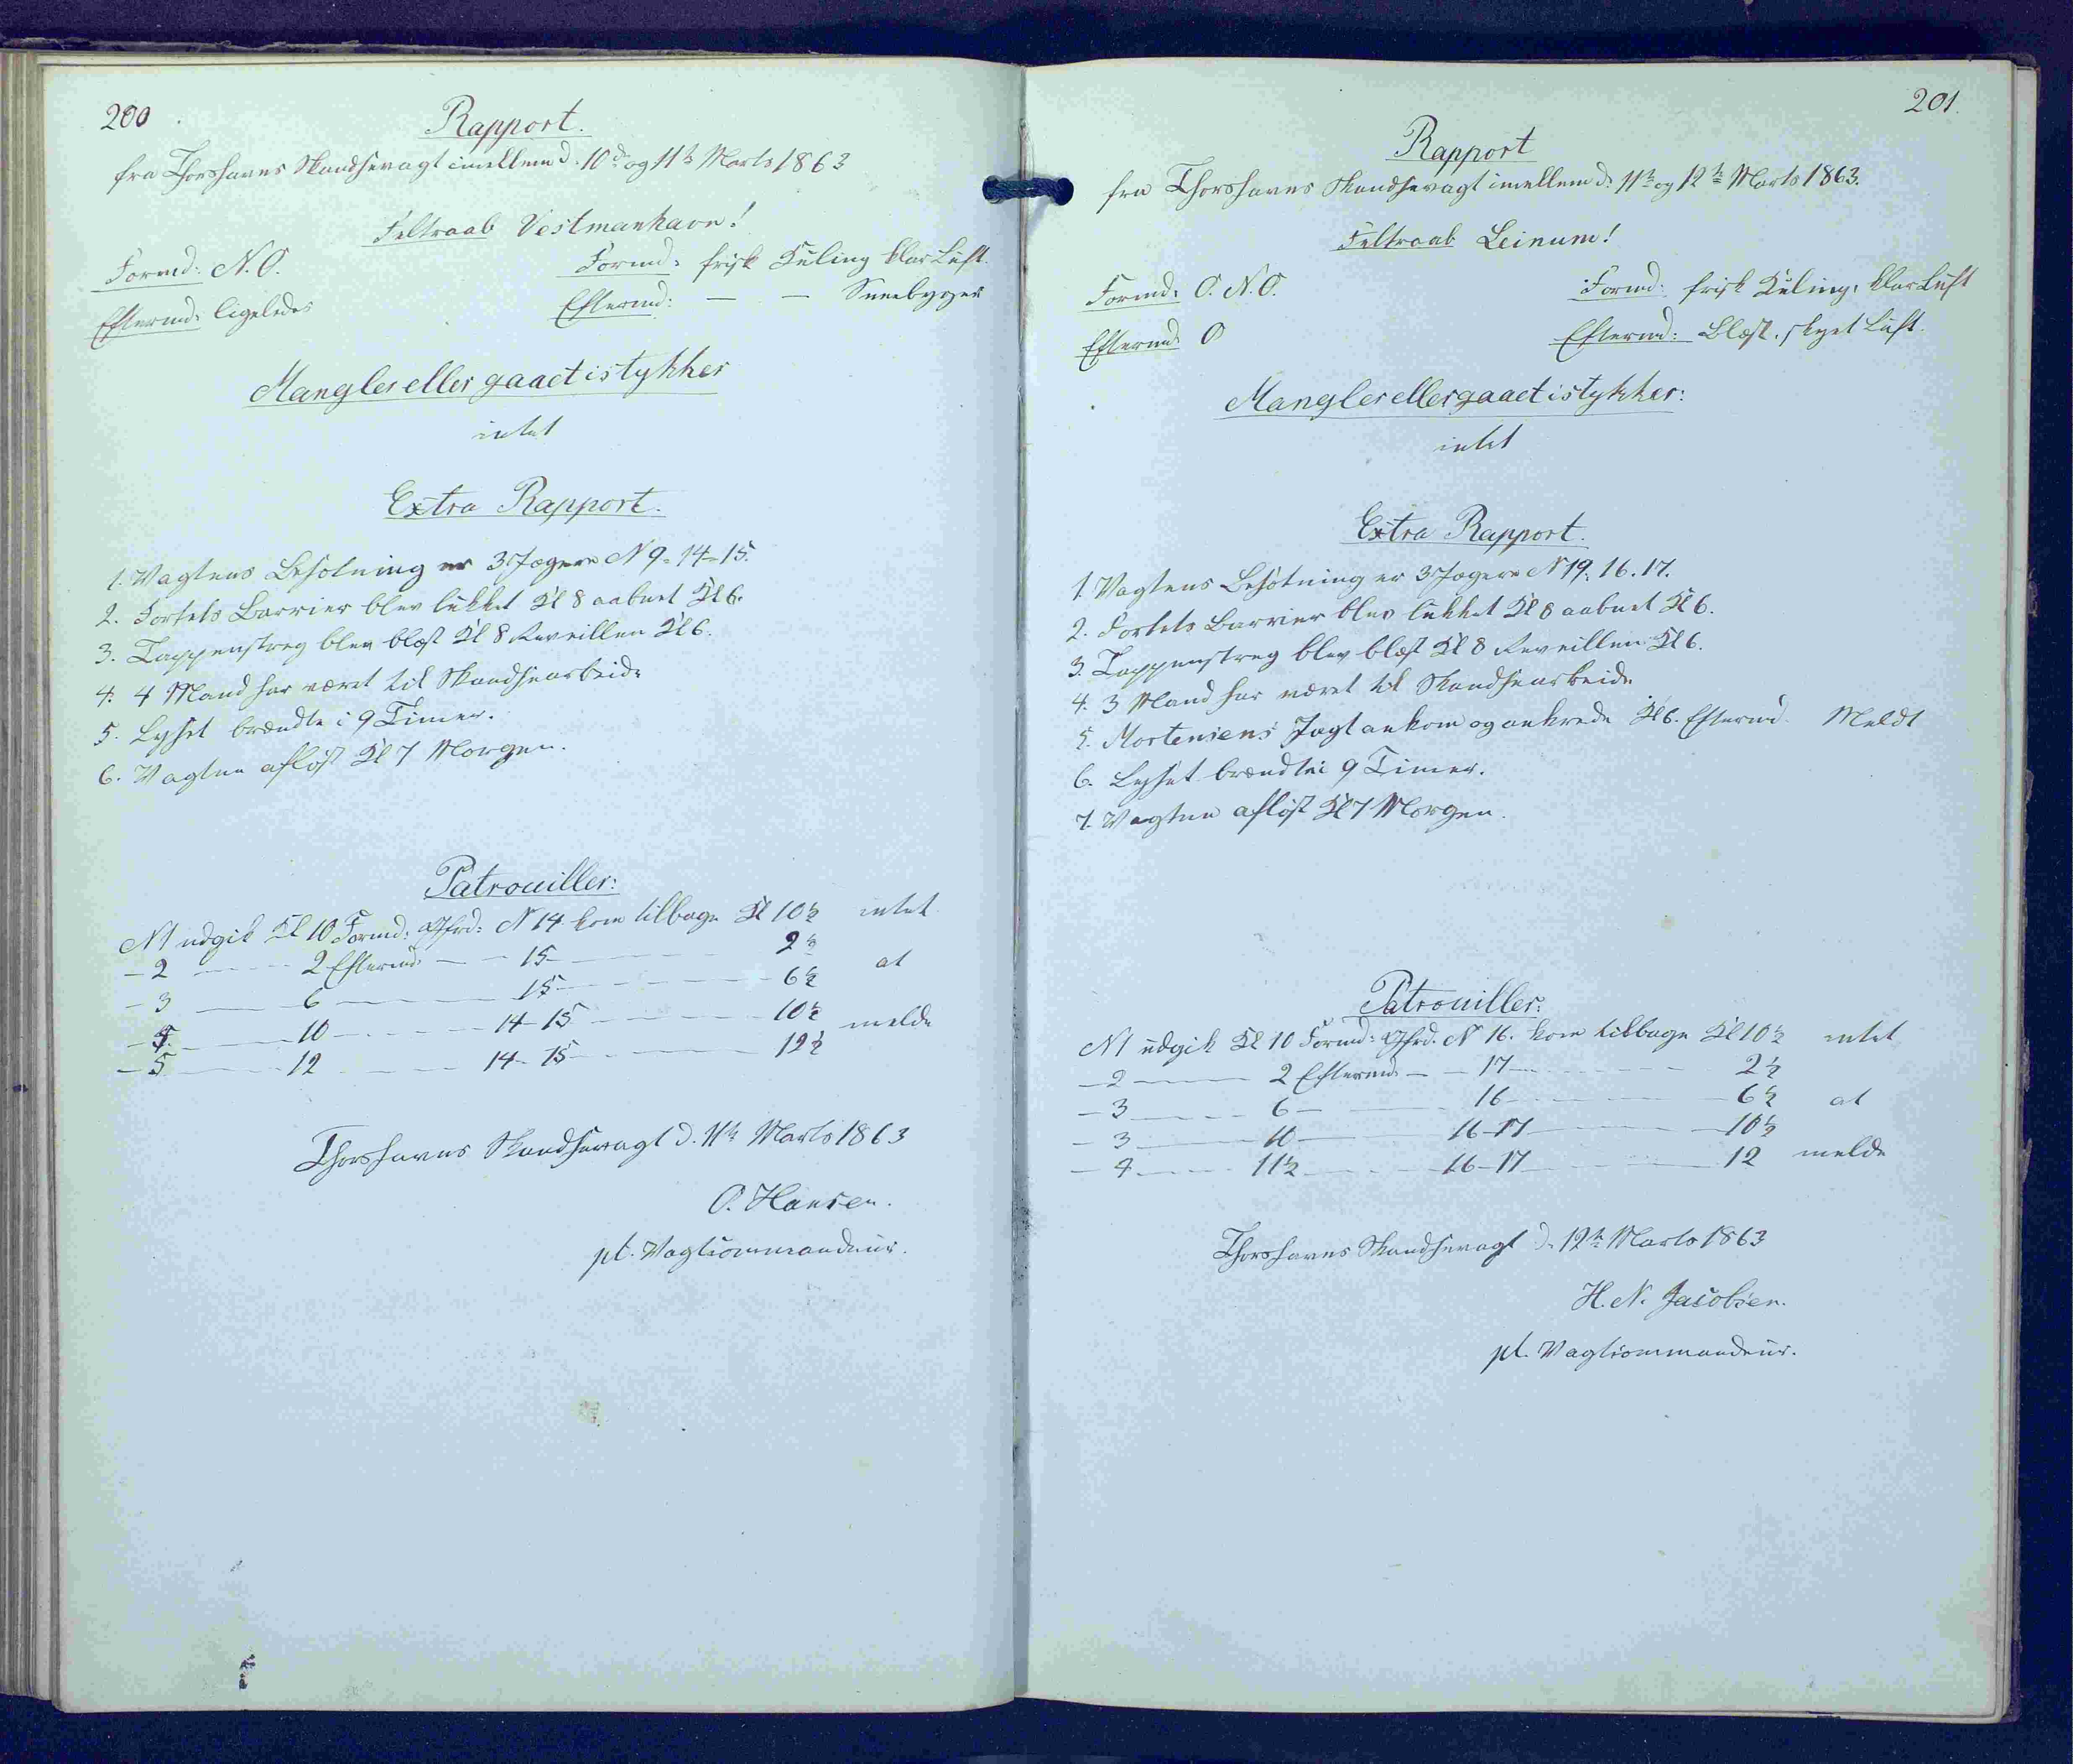 200
Rapport.
fra Thorshavns Skandsevagt imellem d. 10de og 11te Marts 1863
Feltraab Vestmanhavn!
Formd: N. O.
Formd: frisk Kuling klar Luft.
Eftermd: ligeledes
Eftermd: — — Sneebyger
Mangler eller gaaet istykker
intet
Extra Rapport.
1. Vagtens Besætning er 3 Jægere N 9-14-15.
2. Fortets Barrier blev lukket Kl 8 aabnet Kl 6.
3. Tappenstreg blev blæst Kl 8 Reveillen Kl 6.
4. 4 Mand har været til Skandsearbeide
5. Lyset brændte i 9 Timer.
6. Vagten afløst Kl 7 Morgen.
Patrouiller:
N 1 udgik Kl 10 Formd: Gfrd: N 14 kom tilbage Kl 10½ intet
— 2 — 2 Eftermd — — 15 — 2½
at
— 3 — 6 — 15 — 6½
— 4. — 10 — 14-15 — 10½
melde
— 5 — 12 — 14-15 — 12½
Thorshavns Skandsevagt d. 11te Marts 1863
O. Hansen.
pt. Vagtcommandeur.
201.
Rapport
fra Thorshavns Skandsevagt imellem d. 11te og 12te Marts 1863.
Feltraab Leinum!
Formd: O. N. O.
Formd: frisk Kuling, klar Luft
Eftermd: O
Eftermd: Blæst, skyet Luft.
Mangler eller gaaet istykker:
intet
Extra Rapport.
1. Vagtens Besætning er 3 Jægere N 19. 16. 17.
2. Fortets Barrier blev lukket Kl 8 aabnet Kl 6.
3. Tappenstreg blev blæst Kl 8 Reveillen Kl 6.
4. 3 Mand har været til Skandsearbeide
5. Mortensens Jagt ankom og ankrede Kl 6. Eftermd. Meldt
6. Lyset brændte i 9 Timer.
7. Vagten afløst Kl 7 Morgen.
Patrouiller:
N 1 udgik Kl 10 Formd: Gfrd. N 16. kom tilbage Kl 10½ intet
— 2 — 2 Eftermd — — 17 — 2½
— 3 — 6 — 16 — 6½ at
— 3 — 10 — 16-17 — 10½
— 4 — 11½ — 16-17 — 12 melde
Thorshavns Skandsevagt d. 12te Marts 1863
H. N. Jacobsen.
pt. Vagtcommandeur.